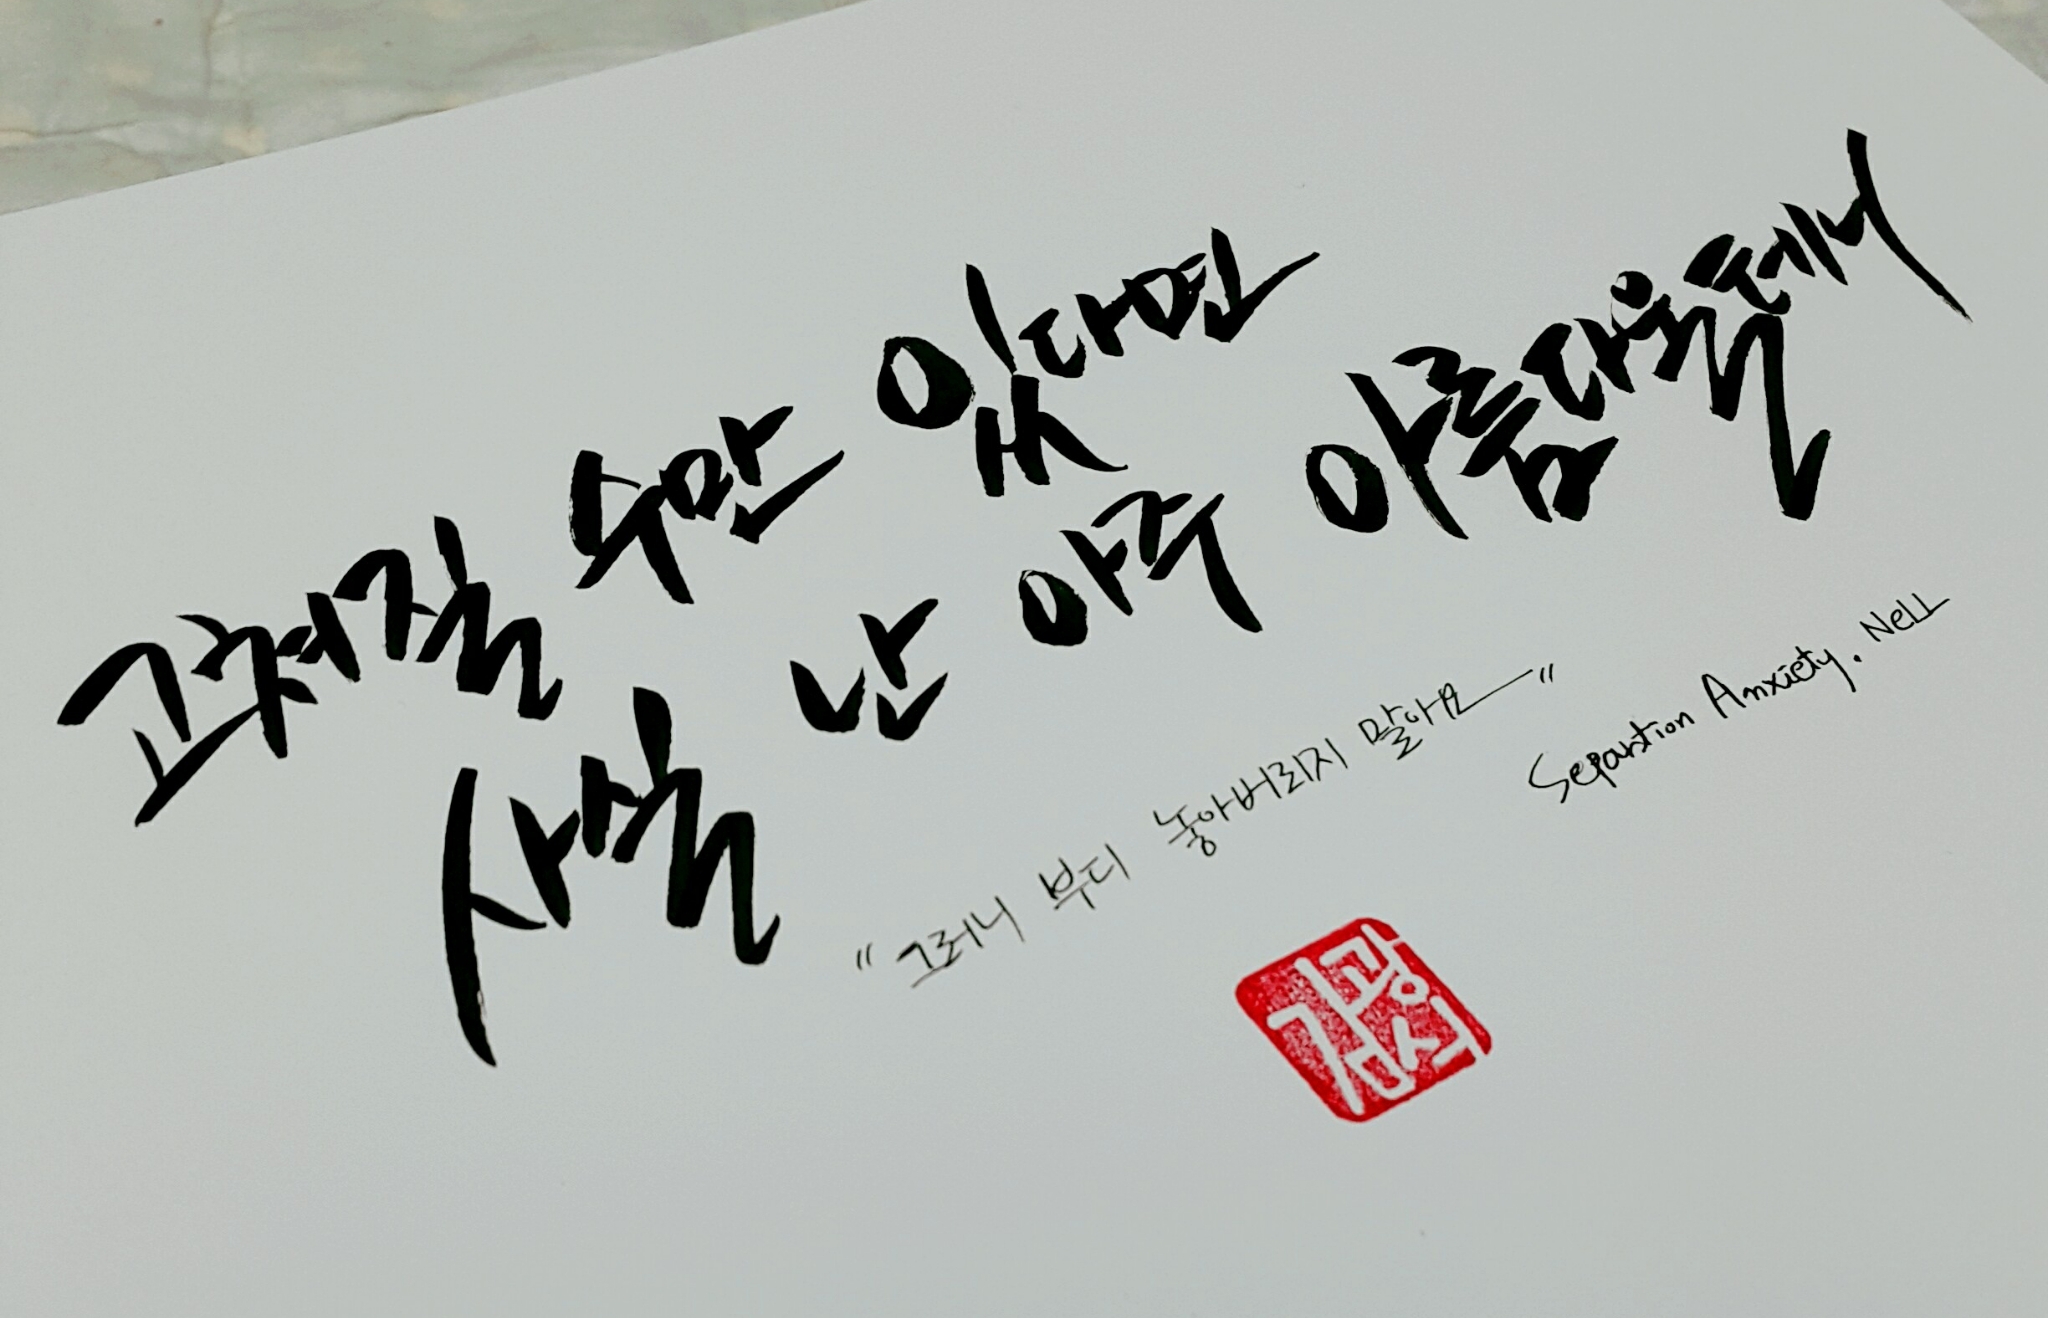 고쳐질 수만 있다면
사실 난 아주 아름다울 테니
"그러니 부디 놓아버리지 말아요"
Separation Anxiety. Nell
김광석